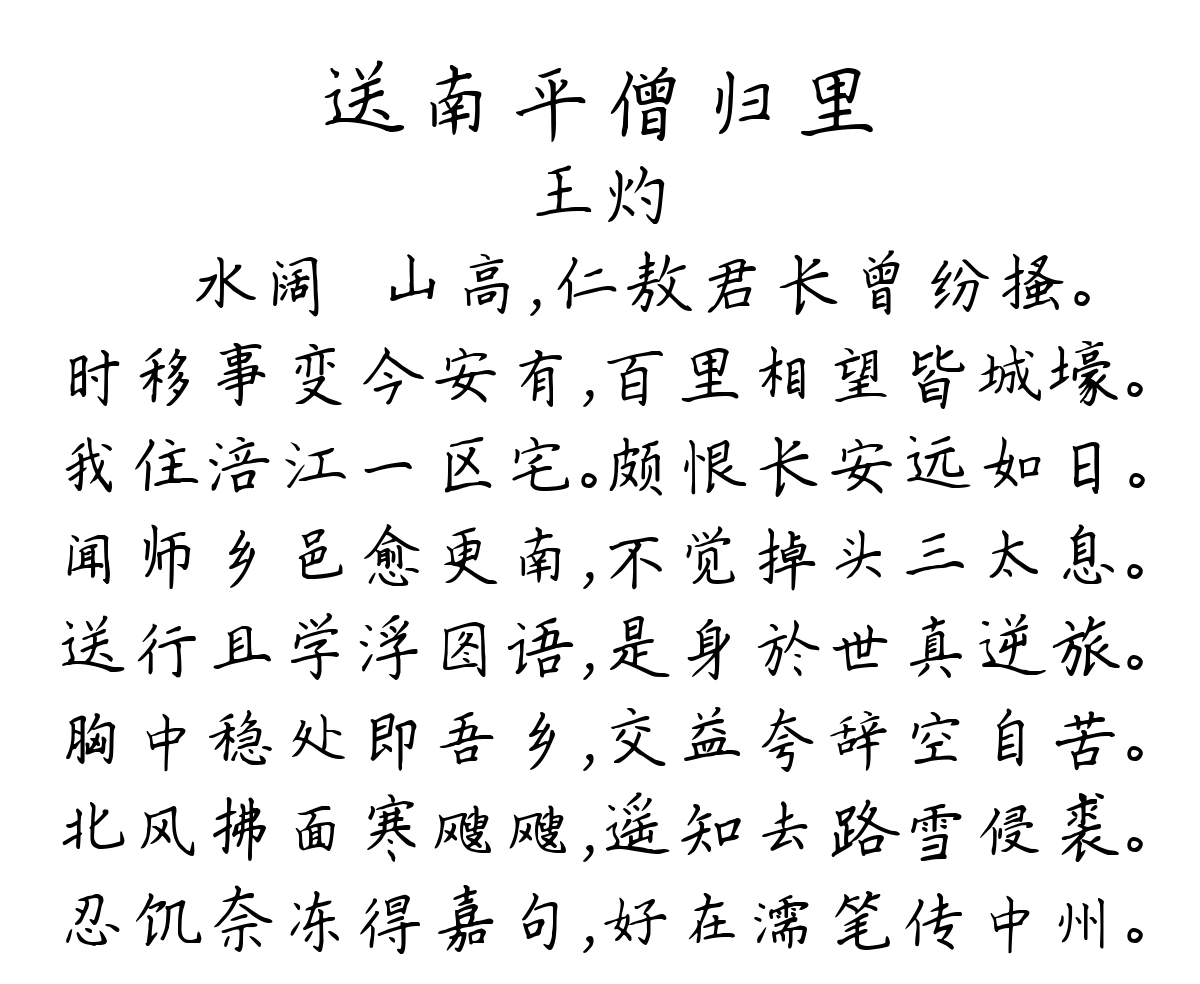 送南平僧归里
王灼
水阔 山高,仁敖君长曾纷搔。
时移事变今安有,百里相望皆城壕。
我住涪江一区宅。颇恨长安远如日。
闻师乡邑愈更南,不觉掉头三太息。
送行且学浮图语,是身於世真逆旅。
胸中稳处即吾乡,交益夸辞空自苦。
北风拂面寒飕飕,遥知去路雪侵裘。
忍饥奈冻得嘉句,好在濡笔传中州。